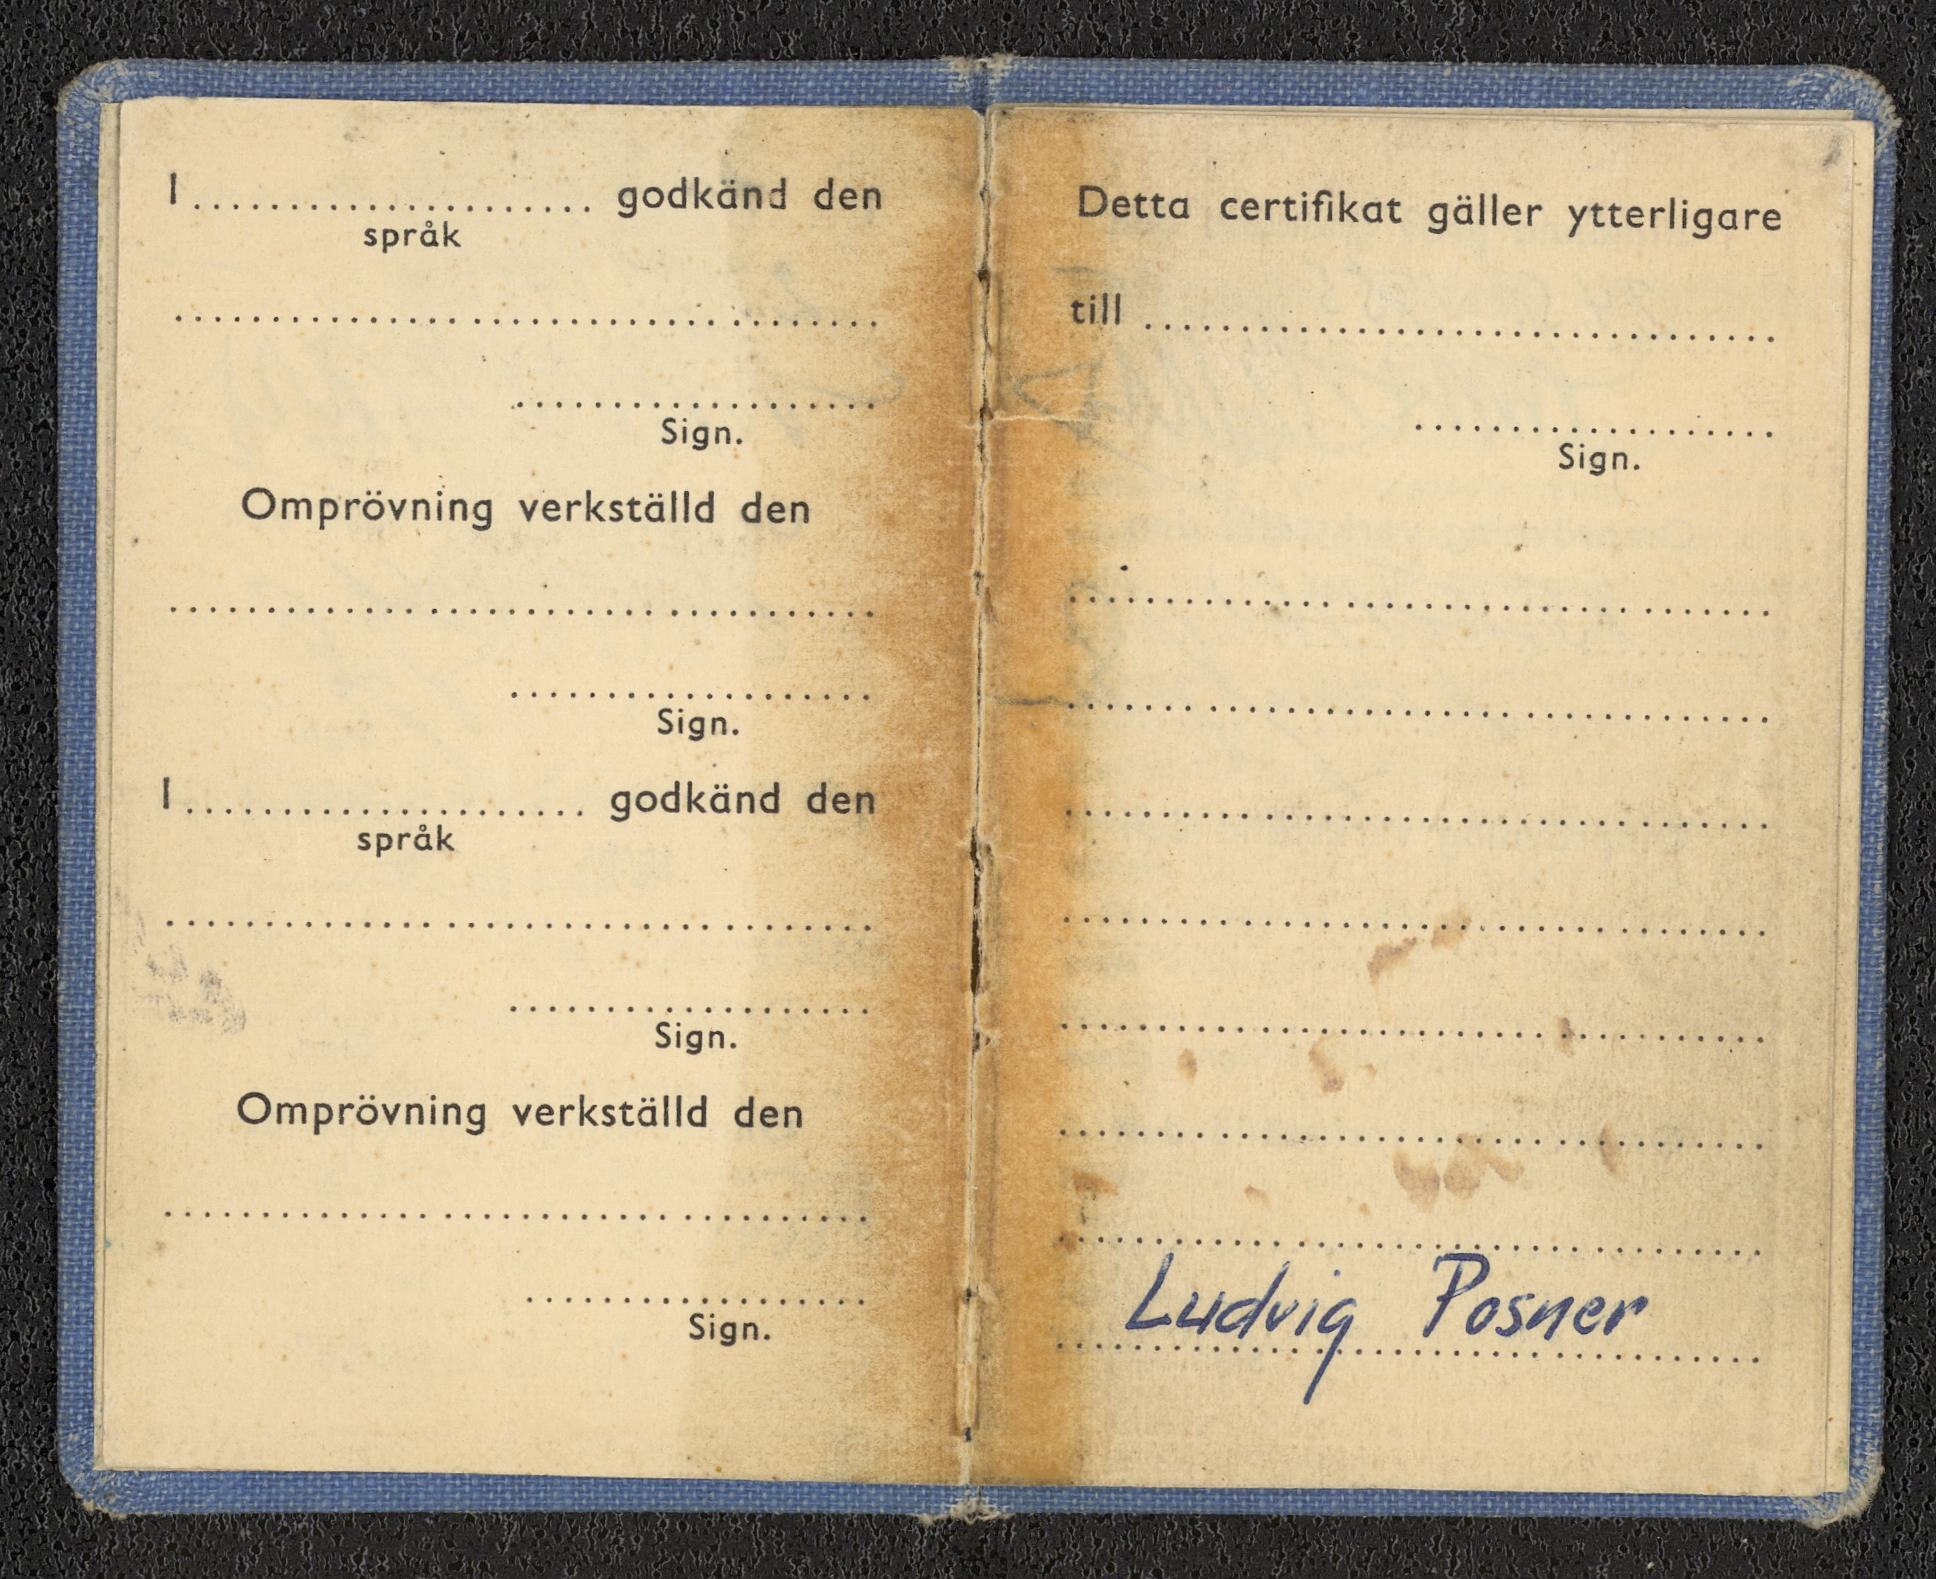 I ..................... godkänd den
språk
.....................................
...................
Sign.
Omprövning verkställd den
.....................................
...................
Sign.
I ..................... godkänd den
språk
.....................................
...................
Sign.
Omprövning verkställd den
.....................................
..................
Sign.
Detta certifikat gäller ytterligare
till .................................
...................
Sign.
Ludvig Posner